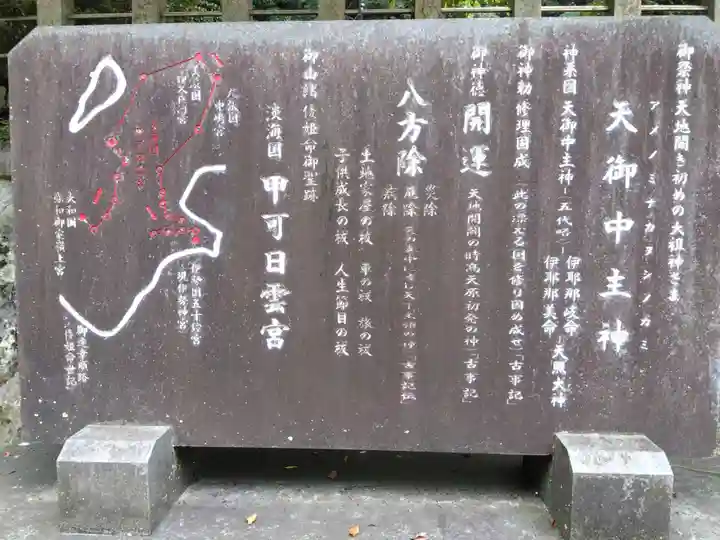 御祭神 天地開き初めの大祖神さま
アメノミナカヌシノカミ
天御中主神
神系図 天御中主神―(五代略)―
伊耶那岐命
伊耶那美命
―天照大神
御神勅 修理固成 「此の漂える国を修り固め成せ」「古事記」
御神徳
開運
天地開闢の時高天原初発の神 「古事記」
八方除
災除
厄除
病除
「古事記伝」
土地家屋の祓 車の祓 旅の祓
子供成長の祓 人生節目の祓
御由緒 倭姫命御聖跡
淡海国 甲可日雲宮
尾張国
中嶋宮
伊勢国五十鈴宮
現伊勢神宮
大和国
御遷幸順路
「倭姫命世記」